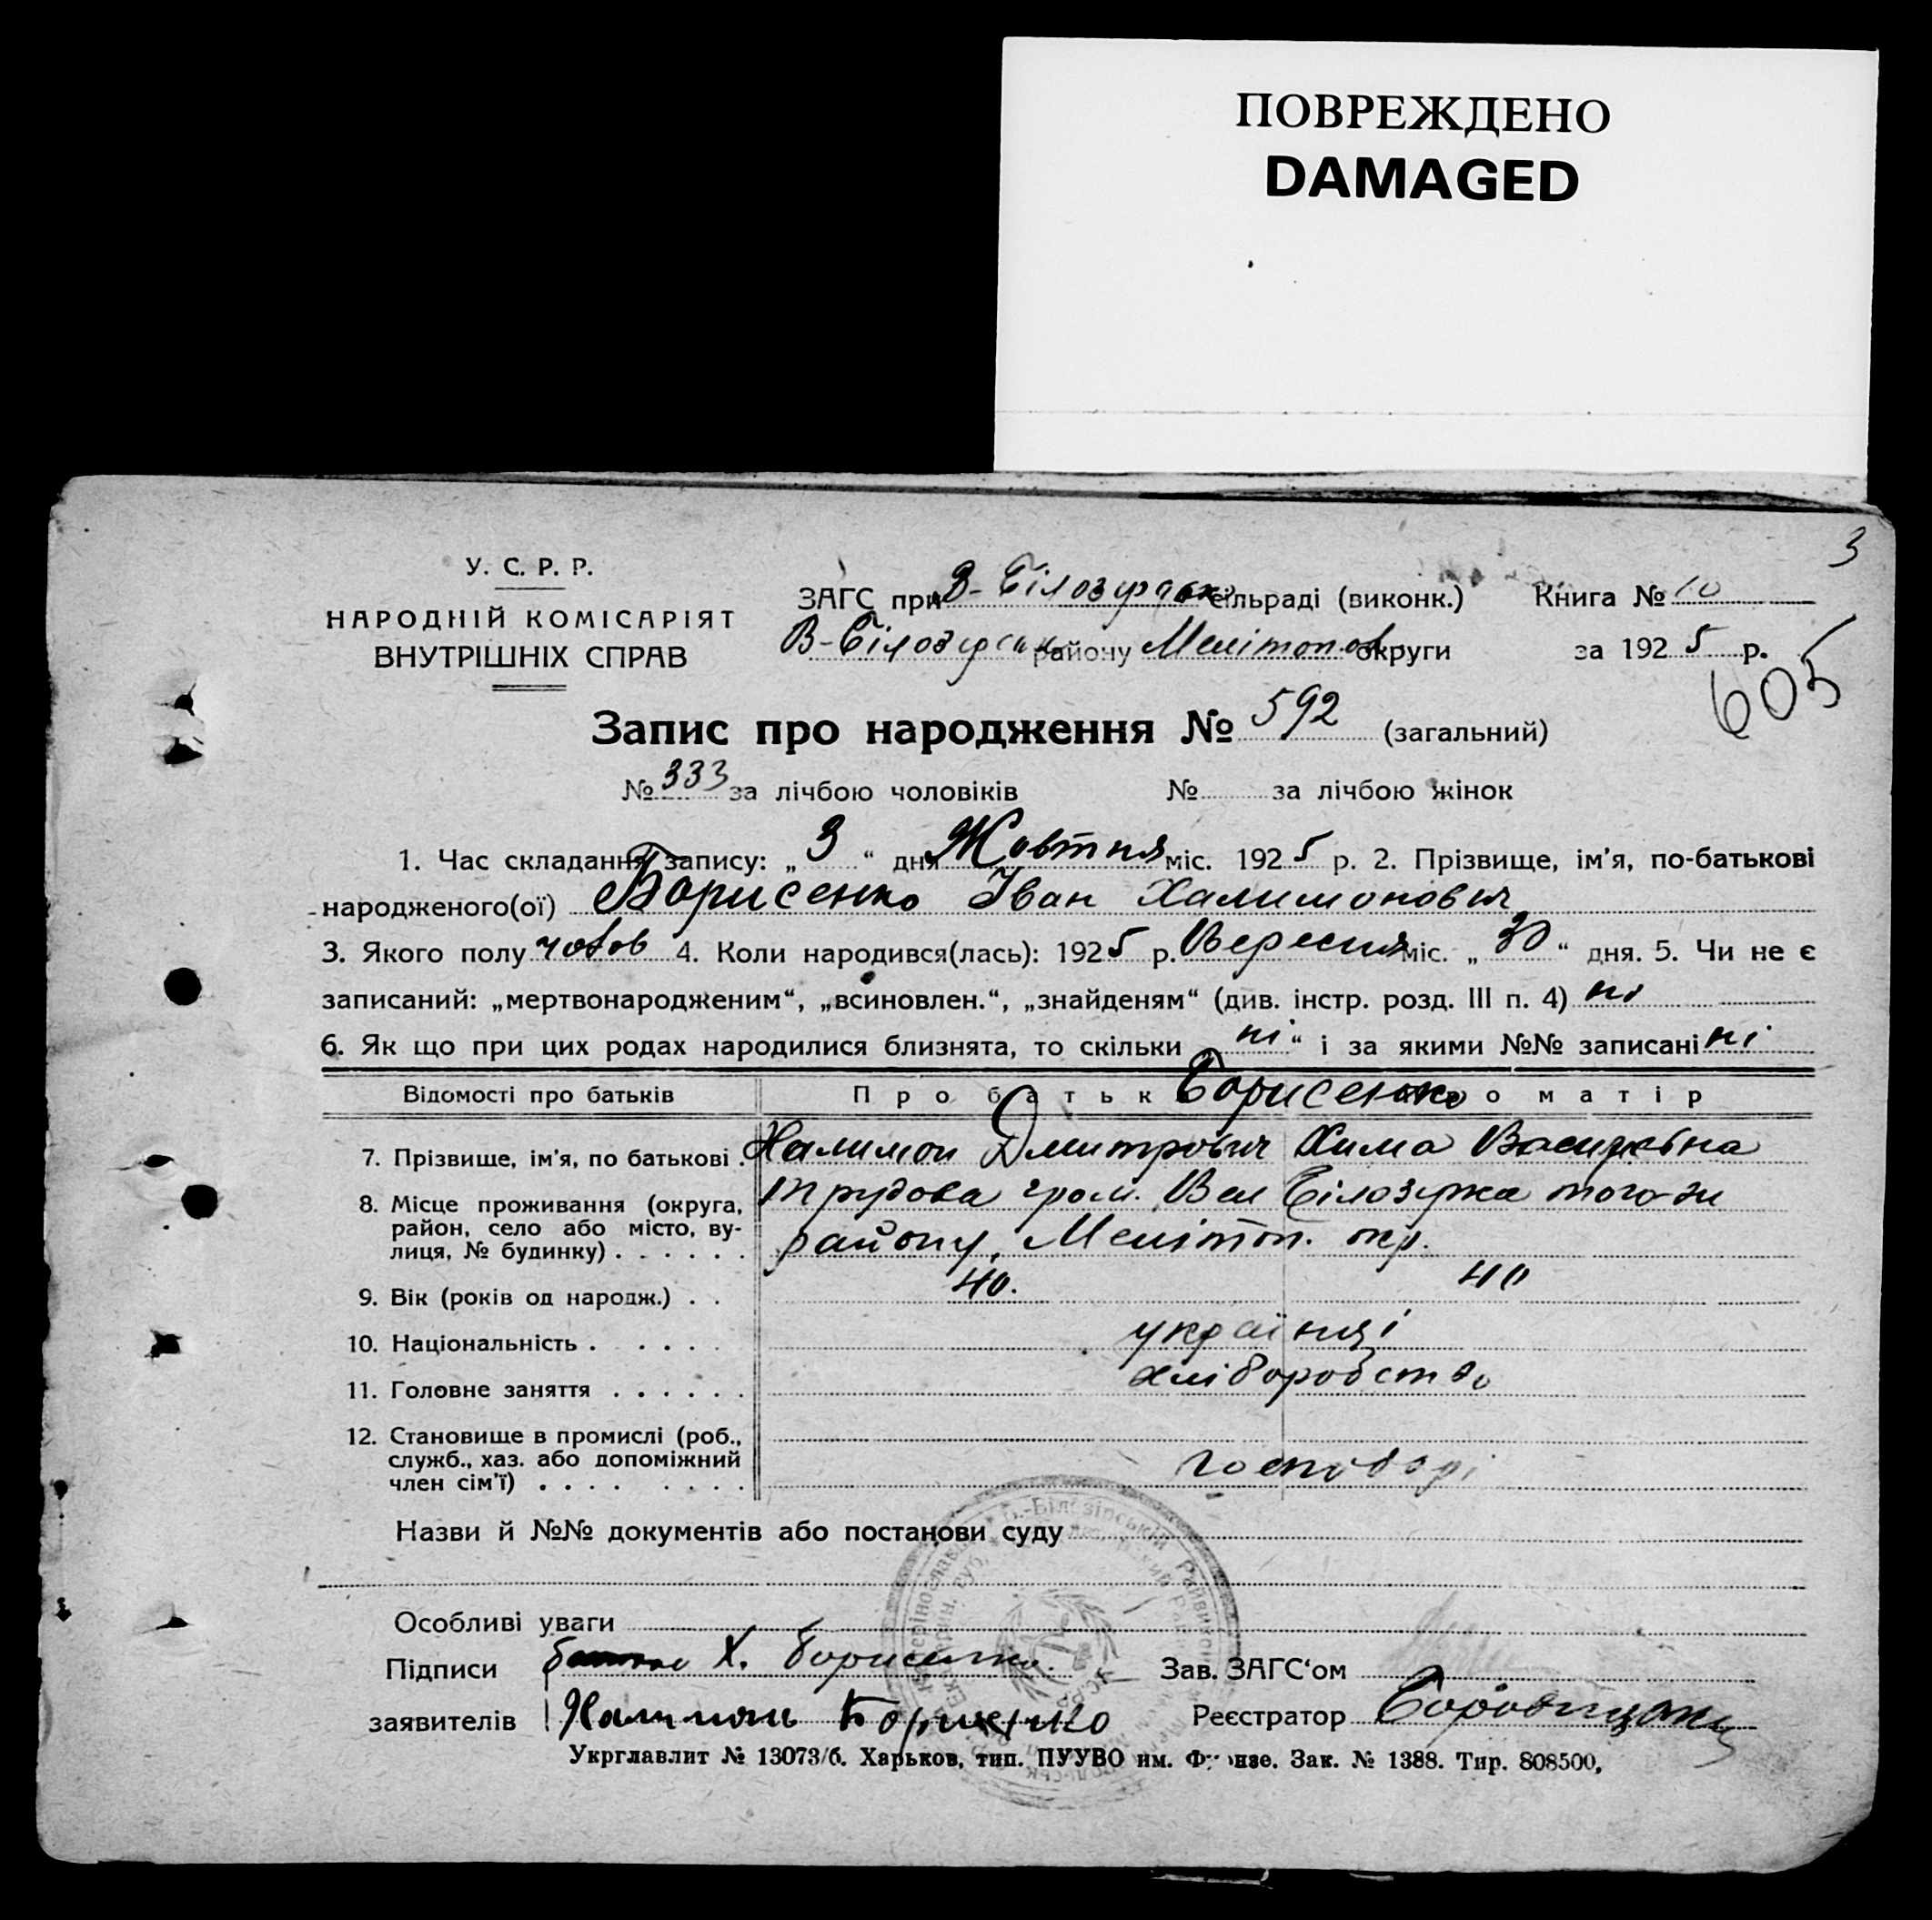 ПОВРЕЖДЕНО
DAMAGED
3
У. С. Р. Р.
НАРОДНІЙ КОМІСАРІЯТ
ВНУТРІШНІХ СПРАВ
ЗАГС при В-Білозерськ сільраді (виконк.) Книга № 10
В-Білозерськ району Мелітопов округи за 1925 р.
605
Запис про народження № 592 (загальний)
№ 333 за лічбою чоловіків № за лічбою жінок
1. Час складання запису: „3“ дня Жовтня міс. 1925 р. 2. Прізвище, ім'я, по-батькові
народженого(ої) Борисенко Іван Халимонович
3. Якого полу чолов 4. Коли народився(лась): 1925 р. Вересня міс. „30“ дня. 5. Чи не є
записаний: „мертвонародженим“, „всиновлен.“, „знайденям“ (див. інстр. розд. III п. 4) ні
6. Як що при цих родах народилися близнята, то скільки „ні“ і за якими №№ записані ні
Відомості про батьків Про батьк Борисенко о матір
7. Прізвище, ім'я, по батькові . Халимон Дмитрович Хима Василівна
8. Місце проживання (округа, Трудова гром. Вел Білозірка того-ж
район, село або місто, ву-
лиця, № будинку) . . . . . . району, Мелітоп. окр.
9. Вік (років од народж.) . . 40. 40
10. Національність . . . . . українці
11. Головне заняття . . . . . . хліборобство
12. Становище в промислі (роб.,
служб., хаз. або допоміжний
член сім'ї) . . . . . . . . господарі
Назви й №№ документів або постанови суду
Особливі уваги
Підписи Х. Борисенко. Зав. ЗАГС'ом
заявителів Халимонь Борисенко Реєстратор
Укрглавлит № 13073/б. Харьков, тип. ПУУВО им. Фрунзе. Зак. № 1388. Тир. 808500.